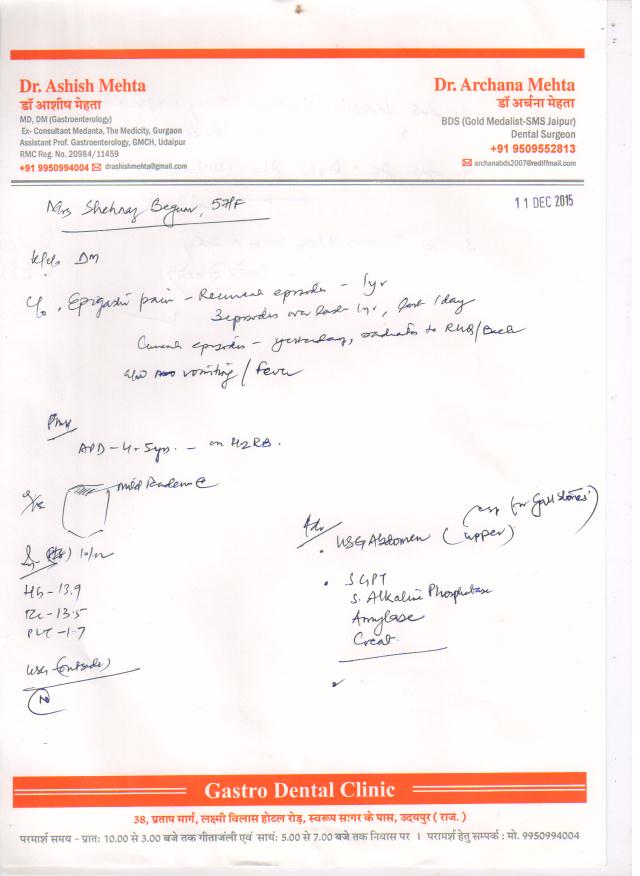 Dr. Ashish Mehta
डॉ आशीष मेहता
MD, DM (Gastroenterology)
Ex- Consultant Medanta, The Medicity, Gurgaon
Assistant Prof. Gastroenterology, GMCH, Udaipur
RMC Reg. No. 20984/11459
+91 9950994004 drashishmehta@gmail.com
Dr. Archana Mehta
डॉ अर्चना मेहता
BDS (Gold Medalist-SMS Jaipur)
Dental Surgeon
+91 9509552813
archanabds2007@rediffmail.com
Mrs Shehnaz Begum, 57/F
11 DEC 2015
K/c/o DM
C/o . Epigastric pain - Recurrent episodes - 1yr
3 episodes over last 1yr, last 1day
Current episode - yesterday, radiates to RUQ/Back
also vomiting / fever
APD - 4-5yrs. - on H2RB.
mild tenderness
Adv
USG Abdomen (upper) (esp for Gall stones)
10/12
Hb - 13.9
TLC - 13.5
PLT - 1.7
USG (outside)
N
SGPT
S. Alkaline Phosphatase
Amylase
Creat.
Gastro Dental Clinic
38, प्रताप मार्ग, लक्ष्मी विलास होटल रोड़, स्वरूप सागर के पास, उदयपुर ( राज. )
परामर्श समय - प्रातः 10.00 से 3.00 बजे तक गीतांजली एवं सायं: 5.00 से 7.00 बजे तक निवास पर । परामर्श हेतु सम्पर्क : मो. 9950994004